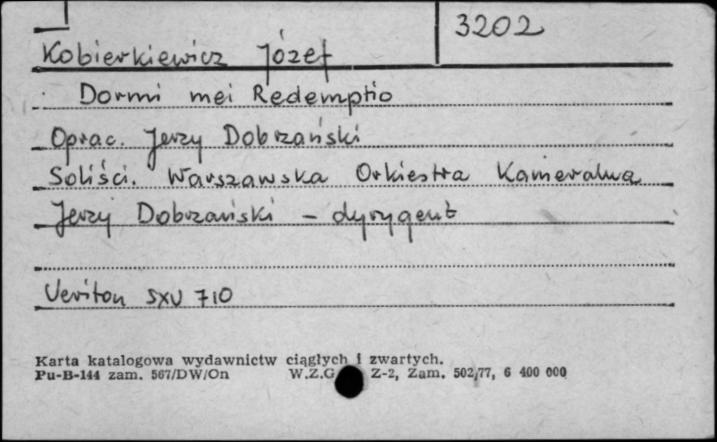 3202
Kobierkiewicz Józef
Dormi mei Redemptio
Oprac. Jerzy Dobrzański
Soliści. Warszawska Orkiestra Kameralna
Jerzy Dobrzański – dyrygent
Veriton SXV 710
Karta katalogowa wydawnictw ciągłych i zwartych.
Pu-B-144 zam. 567/DW/On W.Z.G Z-2, Zam. 502/77, 6 400 000